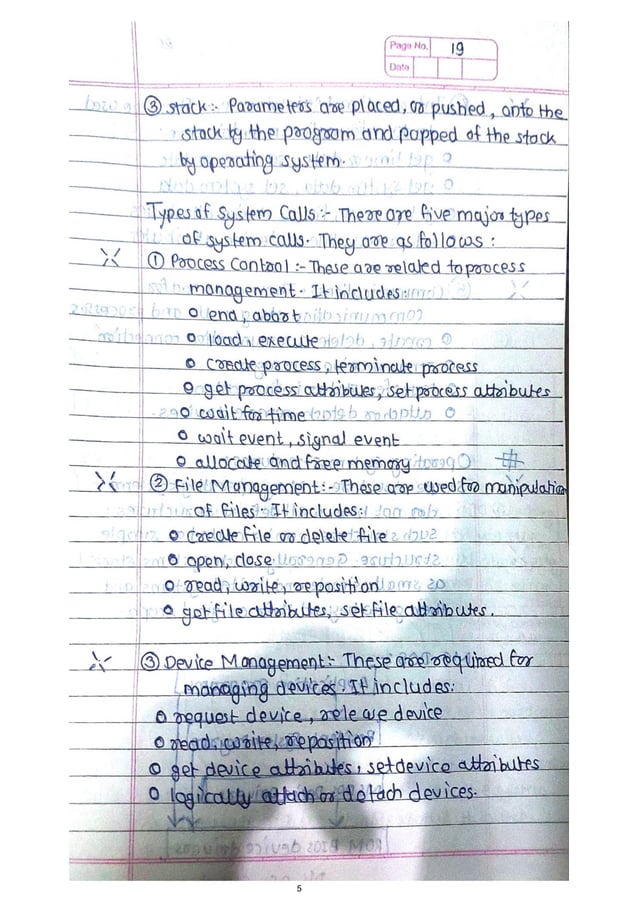 Page No. 19
Date
③ Stack :- Parameters are placed, or pushed, onto the
stack by the program and popped of the stack
by operating system.
Types of System Calls :- There are five major types
of system calls. They are as follows :
① Process Control :- These are related to process
management. It includes:
o end, abort
o load, execute
o create process, terminate process
o get process attributes, set process attributes
o wait for time
o wait event, signal event
o allocate and free memory
② File Management :- These are used for manipulation
of files. It includes:
o create file or delete file
o open, close
o read, write, reposition
o get file attributes, set file attributes.
③ Device Management :- These are required for
managing devices. It includes:
o request device, release device
o read, write, reposition
o get device attributes, set device attributes
o logically attach or detach devices.
5